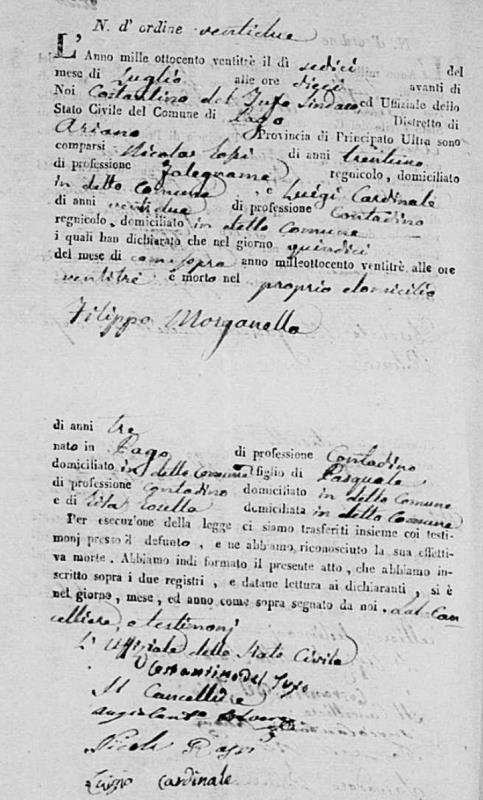 N. d' ordine ventidue
L' Anno mille ottocento ventitrè il dì sedici del
mese di Luglio alle ore dieci avanti di
Noi Costantino del Jufo Sindaco, ed Uffiziale dello
Stato Civile del Comune di Pago Distretto di
Ariano Provincia di Principato Ultra sono
comparsi Nicola di anni trentuno
di professione falegname regnicolo, domiciliato
in detto Comune e Luigi Cardinale
di anni ventidue di professione Contadino
regnicolo, domiciliato in detto Comune
i quali han dichiarato che nel giorno quindici
del mese di come sopra anno milleottocento ventitrè, alle ore
ventitrè è morto nel proprio domicilio
Filippo Morganella
di anni tre
nato in Pago di professione Contadino
domiciliato in detto Comune figlio di Pasquale
di professione Contadino domiciliato in detto Comune
e di Rita domiciliata in detto Comune
Per esecuzione della legge ci siamo trasferiti insieme coi testi-
monj presso il defunto, e ne abbiamo riconosciuto la sua effetti-
va morte. Abbiamo indi formato il presente atto, che abbiamo in-
scritto sopra i due registri, e datane lettura ai dichiaranti, si è
nel giorno, mese, ed anno come sopra segnato da noi, dal Can-
celliere, e testimonj
L' Uffiziale dello Stato Civile
Costantino del Jufo
Il Cancelliere
Nicola
Luigi Cardinale